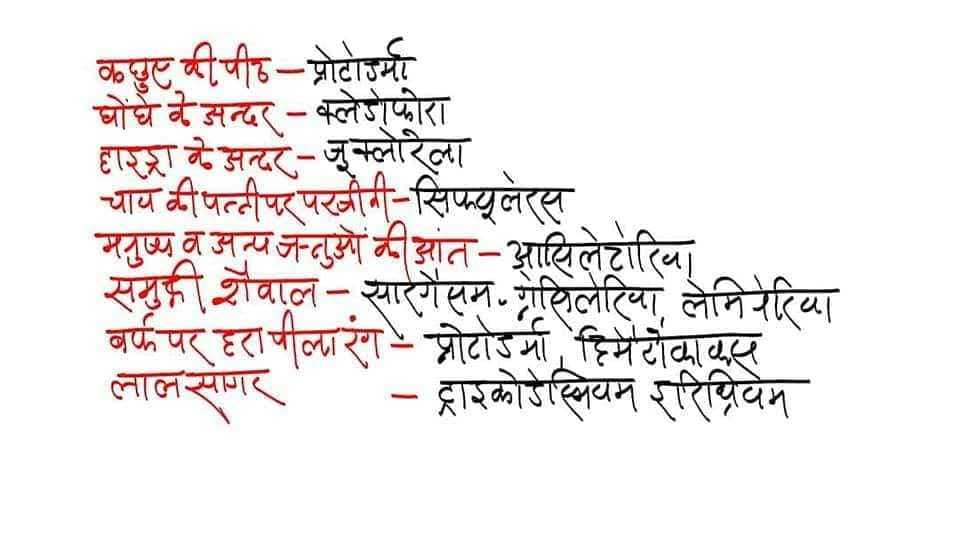 कछुए की पीठ – प्रोटोडर्मा
घोंघे के अन्दर – क्लेडोफोरा
हाइड्रा के अन्दर – जुक्लोरेला
चाय की पत्ती पर परजीवी – सिफ्यूलेरस
मनुष्य व अन्य जन्तुओं की आंत – आसिलेटोरिया
समुद्री शैवाल – सारगैसम - ग्रेसिलेरिया, लेमिनेरिया
बर्फ पर हरा पीला रंग – प्रोटोडर्मा, हिमैटोकाकस
लाल सागर – ट्राइकोडेस्मियम इरिथ्रियम